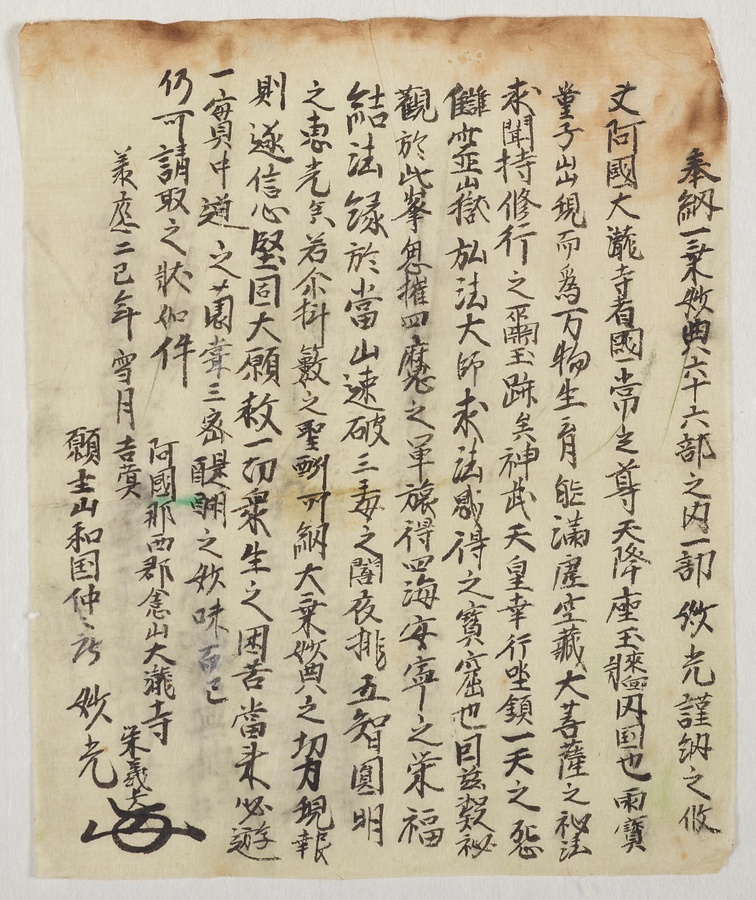 奉納一乗妙典六十六部之内一部 妙光謹納之攸
丈阿國大瀧寺者國常之尊天降座玉勝囚国也雨寳
童子出現而爲万物生育能滿虚空藏大菩薩之秘法
求聞持修行之霊玉跡矣神武天皇幸行坐鎮一天之怨
讎霊山嶽弘法大師求法感得之寳窟也因茲凝秘
觀於此峯忽摧四魔之軍旅得四海安寧之栄福
結法縁於當山速破三毒之闇夜挑五智圓明
之恵光矣若尓抖藪之聖酬所納大乗妙典之切力現報
則遂信心堅固大願救一切衆生之困苦當来必遊
一實中道之薗甞三密醍醐之妙味而已
仍可請取之状如件
承應二巳年雪月吉蓂
阿國那西郡舎山大瀧寺
栄義
願主山和国仲 妙光